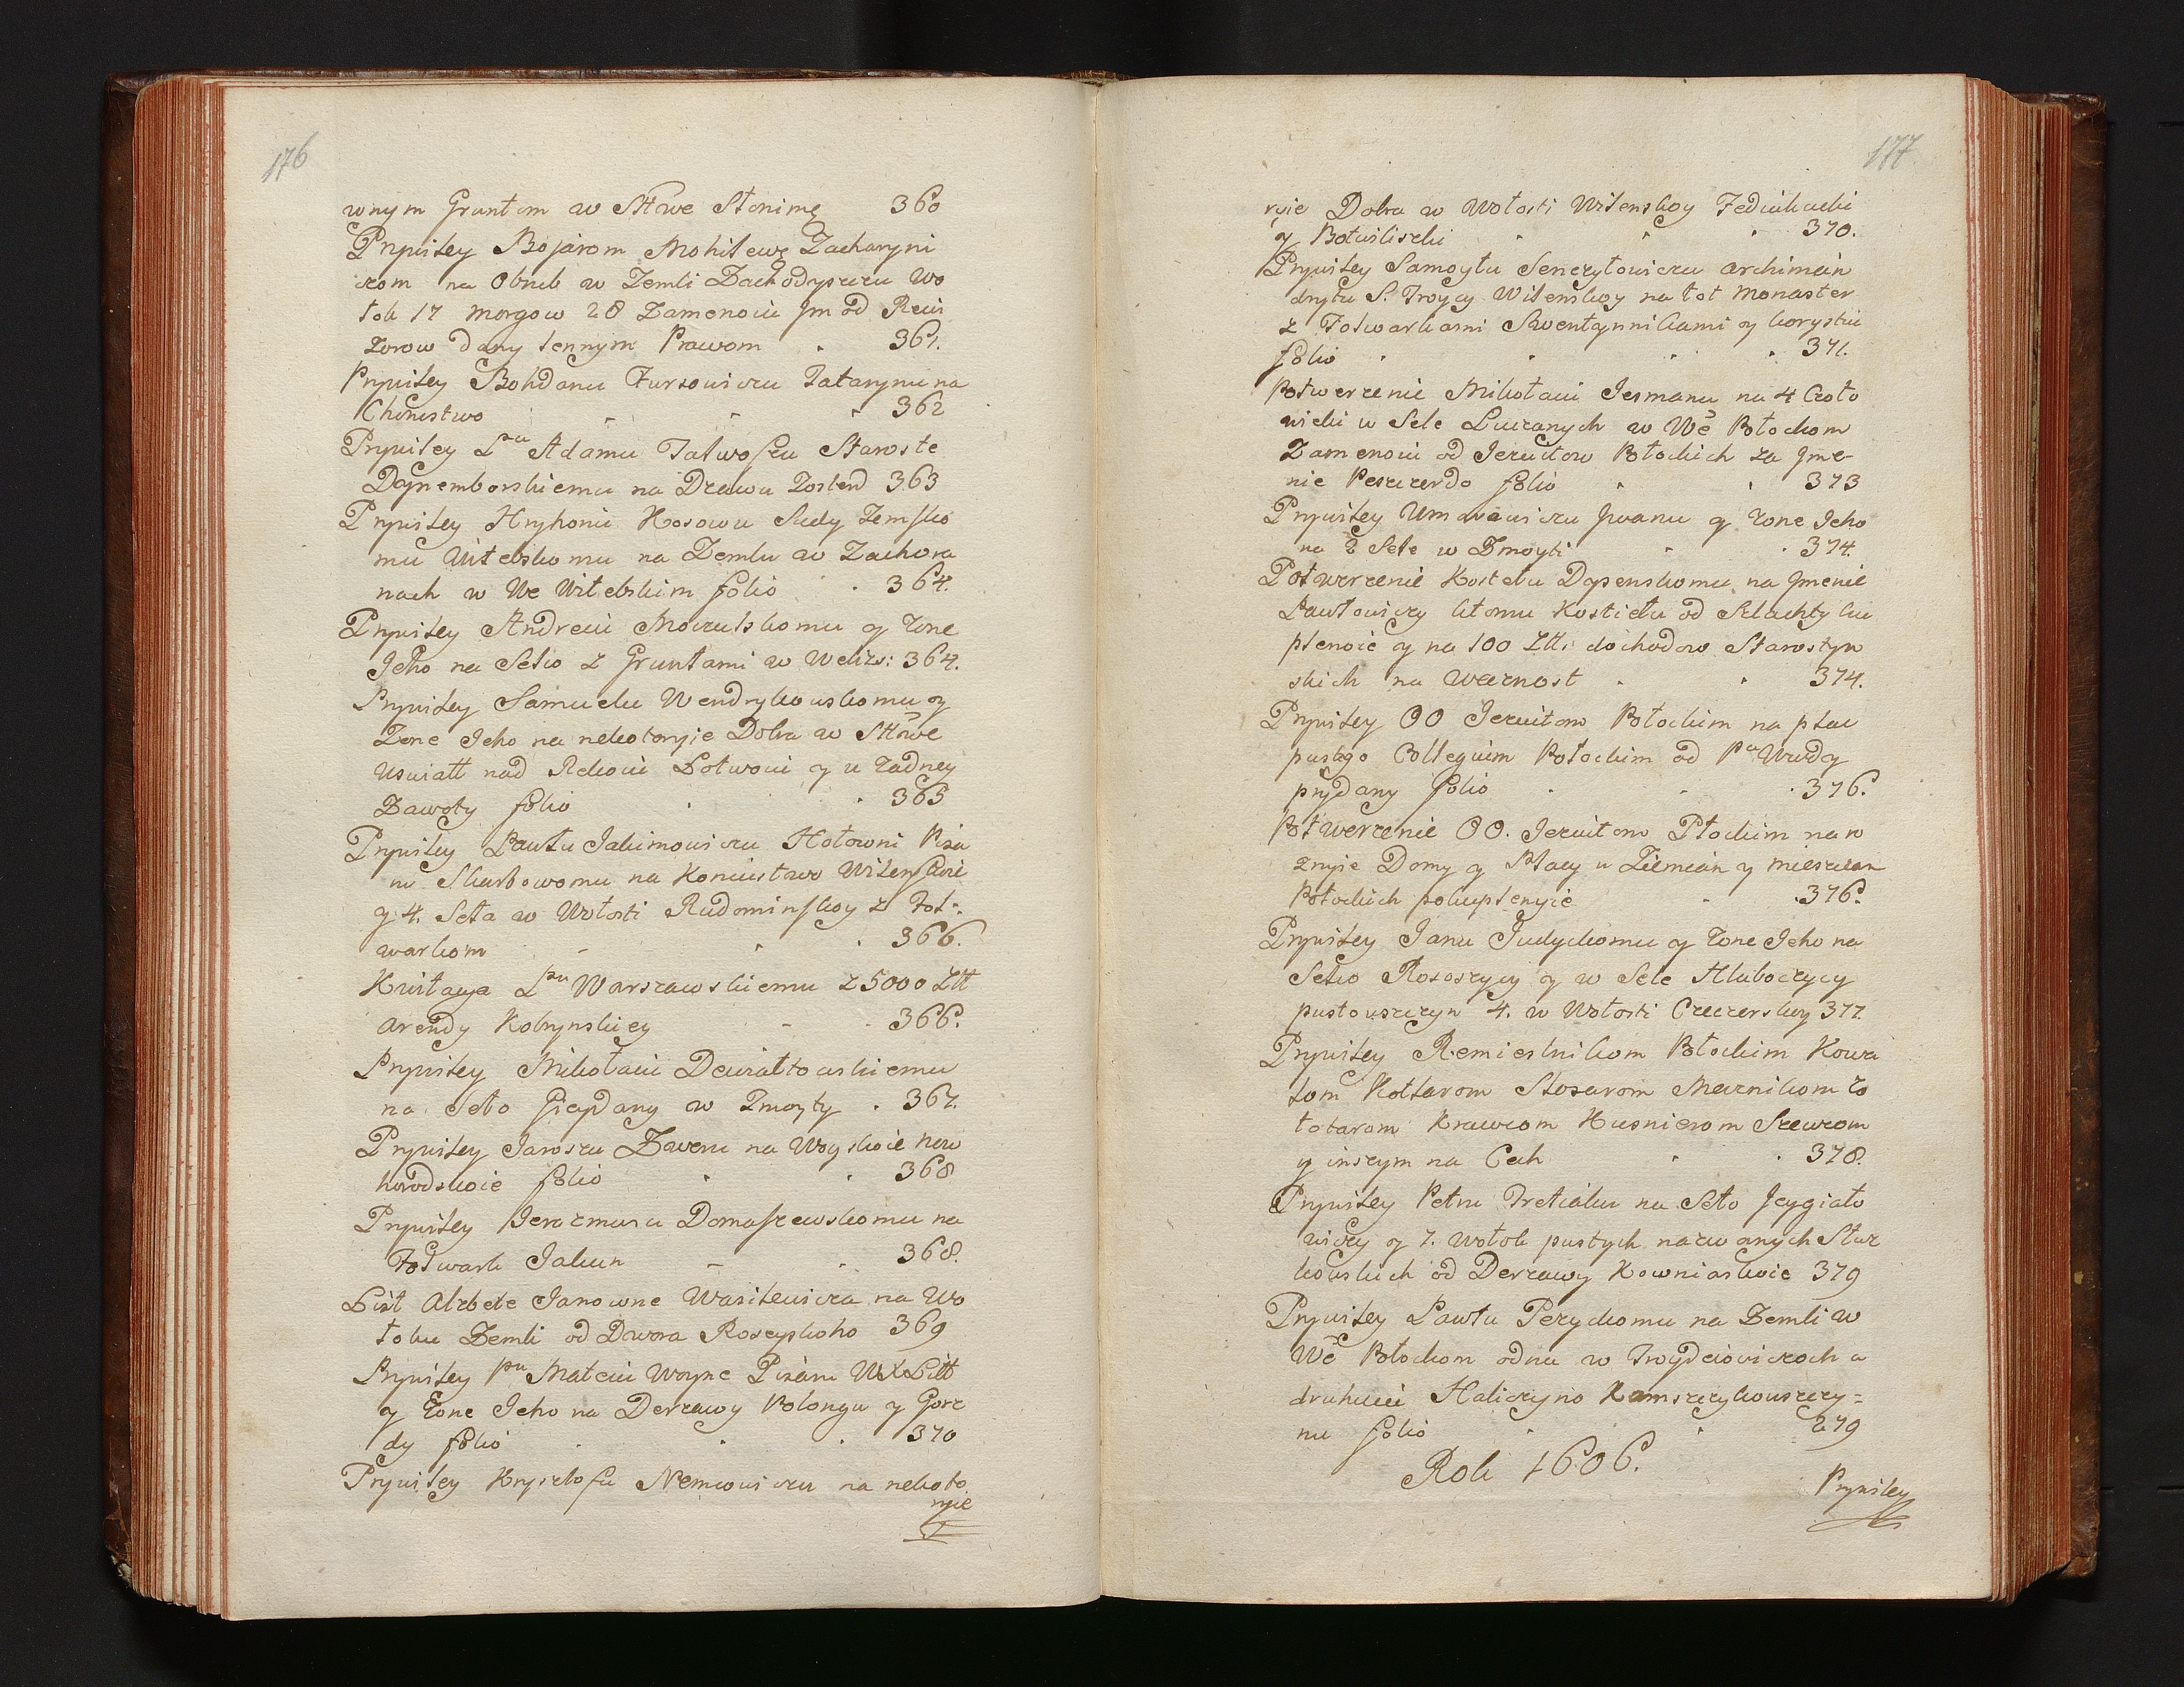 176
wnym Gruntom w Sttwe Stonimę 360
Prywiley Bojarom Mohilewę Zacharyni
czom na Obrub w Zemli Zachodyszczu Wo
tok 17 morgow 28 Zamenoiu Jm od Rewi
zorow dany lennym Prawom . 361.
Prywiley Bohdanu Fursowiczu Tatarynu na
Choruństwo 362
Prywiley Lᵖᵘ Adamu Talwoszu Staroste
Dynemborskiemu na Drawu Zosland 363
Prywiley Hryhoriu Kosowu Sudy Zemsko
mu Witebskomu na Zemlu w Zachora
nach w We Witebskim folio . 364.
Prywiley Andreiu Moczulskomu y Zone
Jeho na Seło z Gruntami w Weliżs: 364.
Prywiley Samuelu Wendrykowskomu y
Zone Jeho na nekotoryie Dobra w Sttwe
Uswiatt nad Rekoiu Łotwoiu y u Zadney
Zawoty folio . . 365
Prywiley Pawłu Jakimowiczu Hołowni Pisa
ru Skarbowomu na Koniustwo Wilenskoie
y 4. Seła w Wołosti Rudominskoy z Fol:
warkom . 366.
Kwitacya Lᵖᵘ Warszawskiemu z 5000 Ztt
Arendy Kobrynskiey - . 366.
Prywiley Mikołaiu Dewiałtowskiemu
na Seło Giepdany w Zmoyty . 367.
Prywiley Jaroszu Zweru na Woyskoie now
horodskoie folio . . 368
Prywiley Jerozmusu Domaszewskomu na
Folwark Jakun - . 368.
List Alzbete Janowne Wasilewicza na Wo
łoku Zemli od Dwora Rosceyskoho 369
Prywiley Pᵘ Mateiu Woyne Pisaru WXLitt
y Zone Jeho na Derzawy Polongu y Gorz
dy folio . . . 370
Prywiley Krysztofu Nemcowiczu na nekoto
ryie
177
ryie Dobra w Wołosti Wilenskoy Fediukuelki
y Botwiliszki . . . 370.
Prywiley Samoyłu Senczyłowiczu Archiman
drytu S. Troycy Wilenskoy na tot Monaster
z Folwarkami Swentynnikami y korystiu
folio . . . . 371.
Potwerzenie Mikołaiu Jesmanu na 4 Czoło
wieki w Sele Luczanych w We Połockom
Zamenoiu od Jezuitow Połockich za Jme-
nie Peszczerdo folio . . 373
Prywiley Umawiczu Jwanu y Zone Jeho
na 2 Sele w Zmoyti . . 374.
Potwerzenie Kostelu Dysenskomu na Jmenie
Pawłowiczy ktomu Kostiełu od Szlachty ku
plenoie y na 100 Ztt: dochodow Starostyn
skich na wecznost . . 374.
Prywiley OO Jezuitom Połockim na plac
pustyo Collegium Połockim od Pᵘ Wuldy
prydany folio . . . 376.
Potwerzenie OO. Jezuitom Płockim na ro
znyie Domy y Placy u Ziemian y mieszczan
Połockich pokuplenyie . . 376.
Prywiley Janu Judyckomu y Zone Jeho na
Seło Rososzycy y w Sele Hluboczycy
pustowszczyn 4. w Wołosti Czeczerskoy 377.
Prywiley Remieslnikom Połockim Kowa
lom Kotlarom Slosarom Mecznikom Zo
łotarom Krawcom Kusnierom Szewcom
y inszym na Cech . . 378.
Prywiley Petru Tretiaku na Seło Jeygiało
wiczy y 7. Wołok pustych nazwanych Stur
kowskich od Derzawy Kowniaskoie 379
Prywiley Pawłu Perzyckomu na Zemli w
We Połockom odnu w Troydewiczoch a
druhuiu Haliczyno Kamszczykowszczy=
nu folio . . 279
Rok 1606.
Prywiley